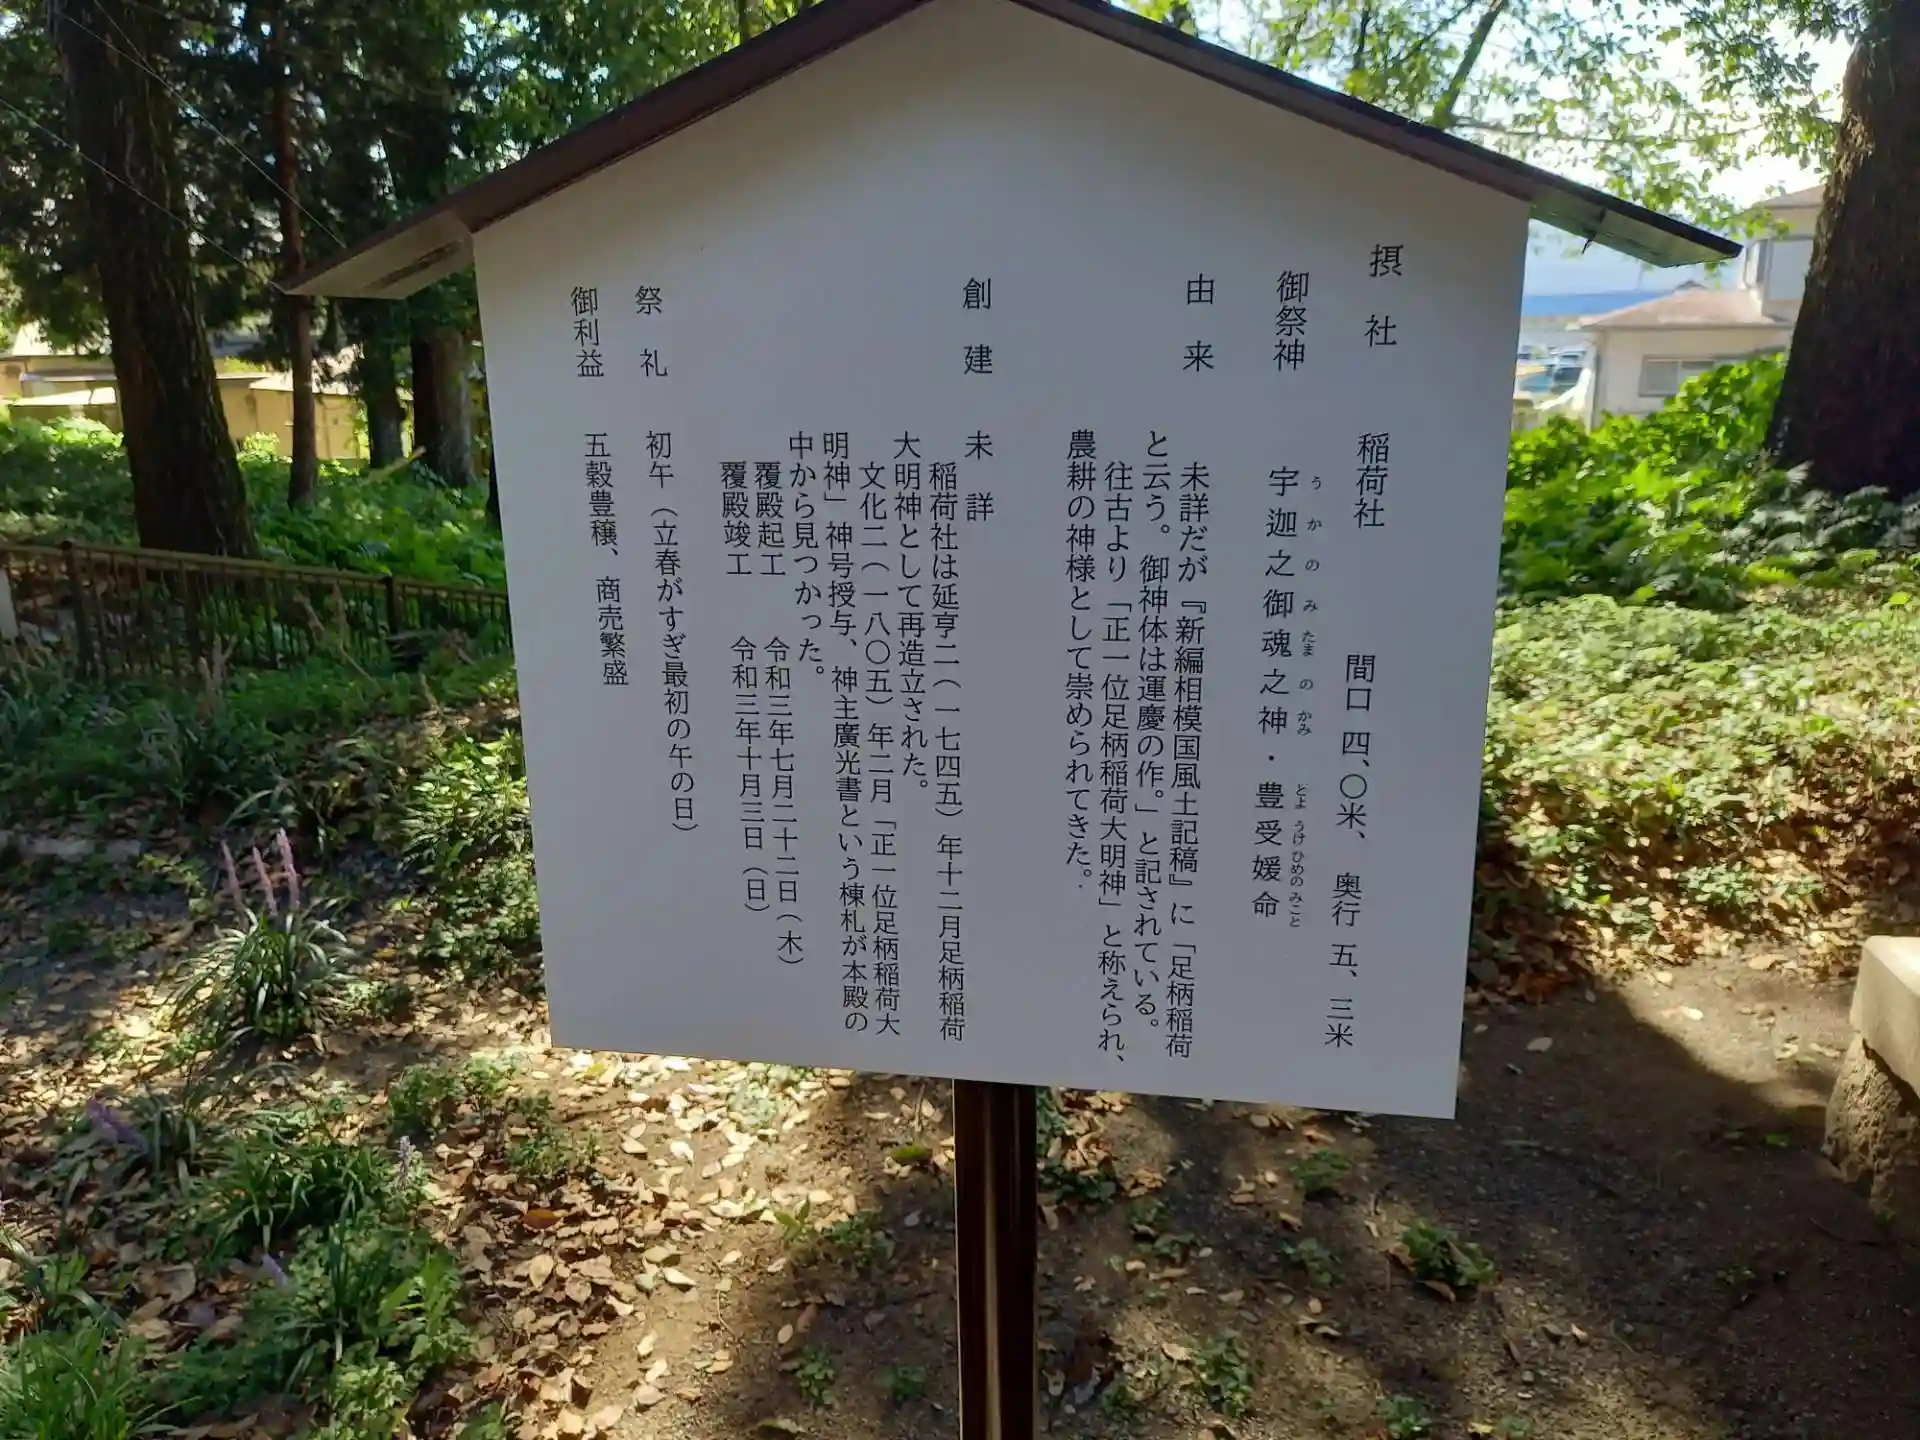 摂社 稲荷社 間口 四、〇米、 奥行 五、三米
御祭神 宇迦之御魂之神・豊受媛命
うかのみたまのかみ とようけひめのみこと
由来 未詳だが『新編相模国風土記稿』に「足柄稲荷
と云う。御神体は運慶の作。」と記されている。
往古より「正一位足柄稲荷大明神」と称えられ、
農耕の神様として崇められてきた。
創建 未詳
稲荷社は延享二(一七四五)年十二月足柄稲荷
大明神として再造立された。
文化二(一八〇五)年二月「正一位足柄稲荷大
明神」神号授与、神主廣光書という棟札が本殿の
中から見つかった。
覆殿起工 令和三年七月二十二日(木)
覆殿竣工 令和三年十月三日(日)
祭礼 初午(立春がすぎ最初の午の日)
御利益 五穀豊穣、商売繁盛